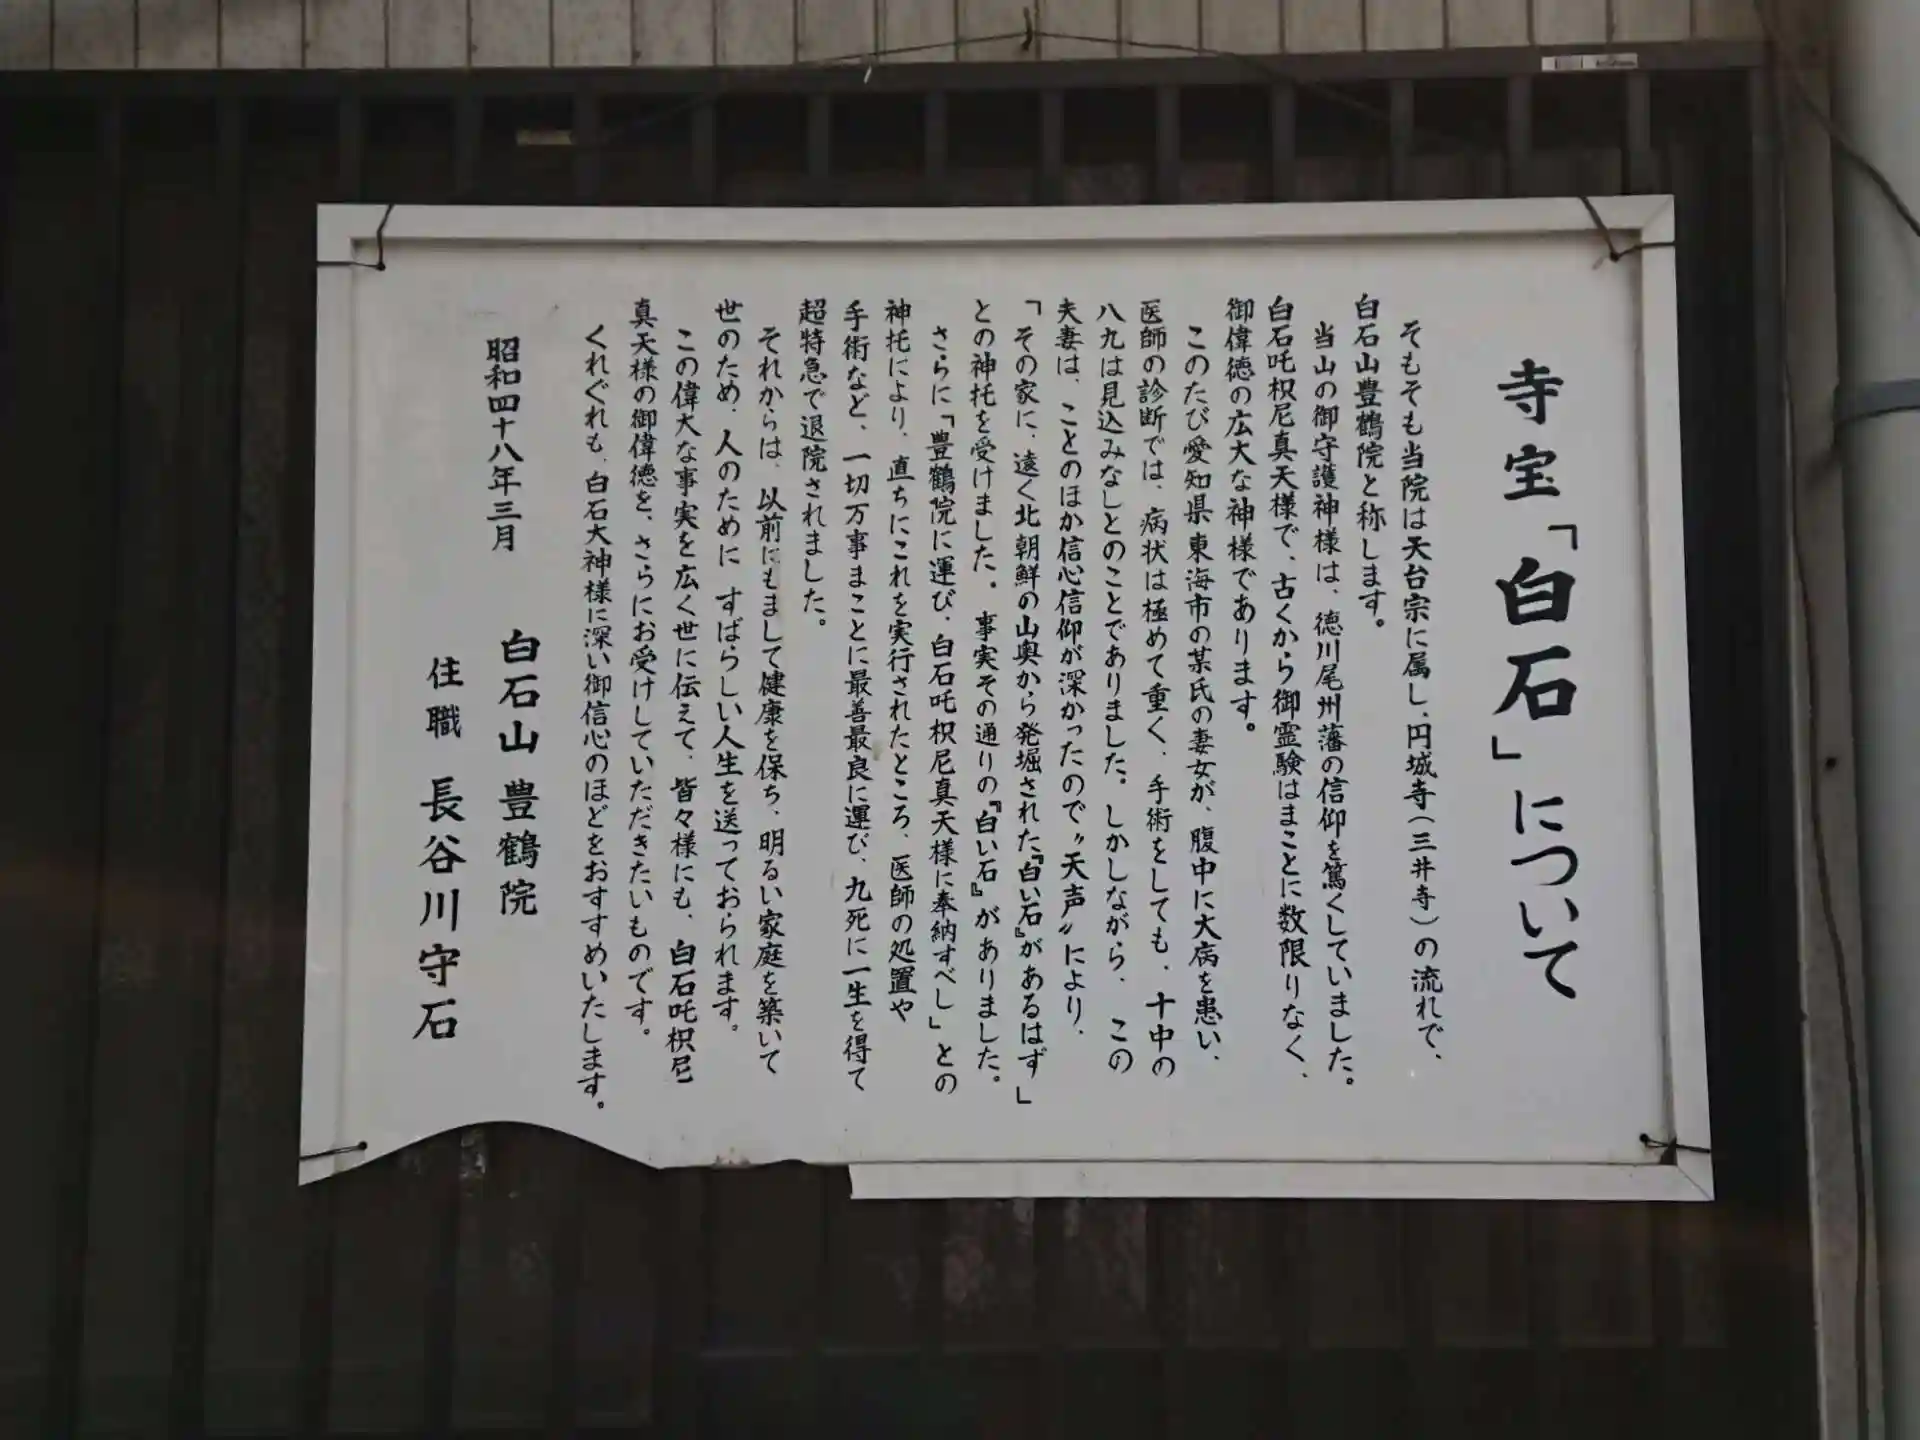 寺宝「白石」について
そもそも当院は天台宗に属し、円城寺(三井寺)の流れで、
白石山豊鶴院と称します。
当山の御守護神様は、徳川尾州藩の信仰を篤くしていました。
白石吒枳尼真天様で、古くから御霊験はまことに数限りなく、
御偉徳の広大な神様であります。
このたび愛知県東海市の某氏の妻女が、腹中に大病を患い、
医師の診断では、病状は極めて重く、手術をしても、十中の
八九は見込みなしとのことでありました。しかしながら、この
夫妻は、ことのほか信心信仰が深かったので〝天声〟により、
「その家に、遠く北朝鮮の山奥から発堀された『白い石』があるはず」
との神托を受けました。事実その通りの『白い石』がありました。
さらに「豊鶴院に運び、白石吒枳尼真天様に奉納すべし」との
神托により、直ちにこれを実行されたところ、医師の処置や
手術など、一切万事まことに最善最良に運び、九死に一生を得て
超特急で退院されました。
それからは、以前にもまして健康を保ち、明るい家庭を築いて
世のため、人のために すばらしい人生を送っておられます。
この偉大な事実を広く世に伝えて、皆々様にも、白石吒枳尼
真天様の御偉徳を、さらにお受けしていただきたいものです。
くれぐれも、白石大神様に深い御信心のほどをおすすめいたします。
昭和四十八年三月
白石山 豊鶴院
住職 長谷川守石